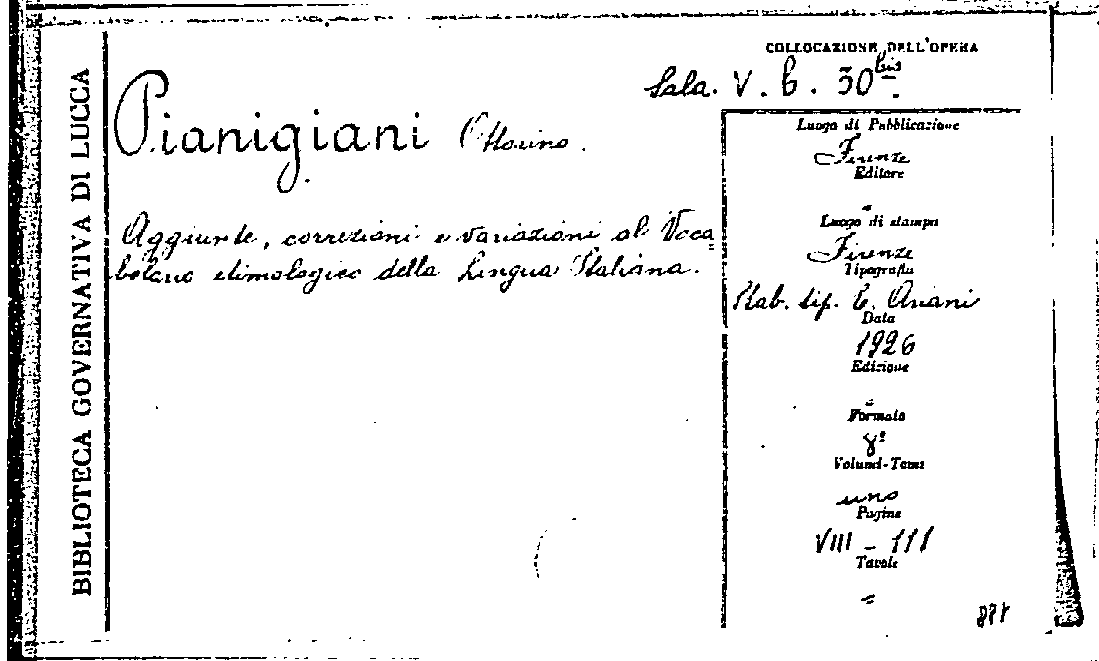 BIBLIOTECA GOVERNATIVA DI LUCCA
COLLOCAZIONE DELL'OPERA
Sala. V. E. 30 bis.
Pianigiani Ottorino.
Aggiunte, correzioni e variazioni al Voca
bolario etimologico della Lingua Italiana.
Luogo di Pubblicazione
Firenze
Editore
=
Luogo di stampa
Firenze
Tipografia
Stab. tip. E. Ariani
Data
1926
Edizione
=
Formato
8º
Volumi-Tomi
uno
Pagine
VIII - 111
Tavole
=